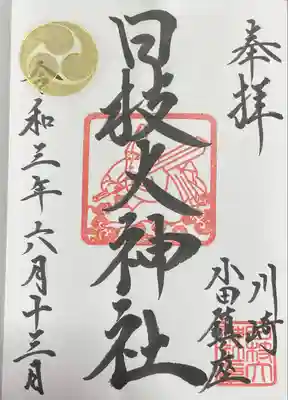 奉拝
川崎
小田鎮座
日枝大神社
令和三年六月十三月